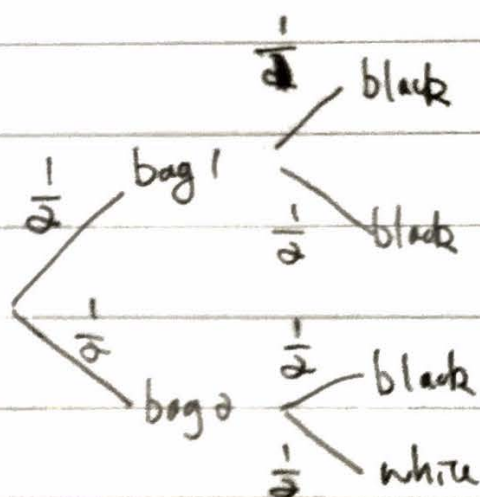 1/2 black
1/2 bag 1
1/2 black
1/2
1/2 black
bag 2
1/2 white